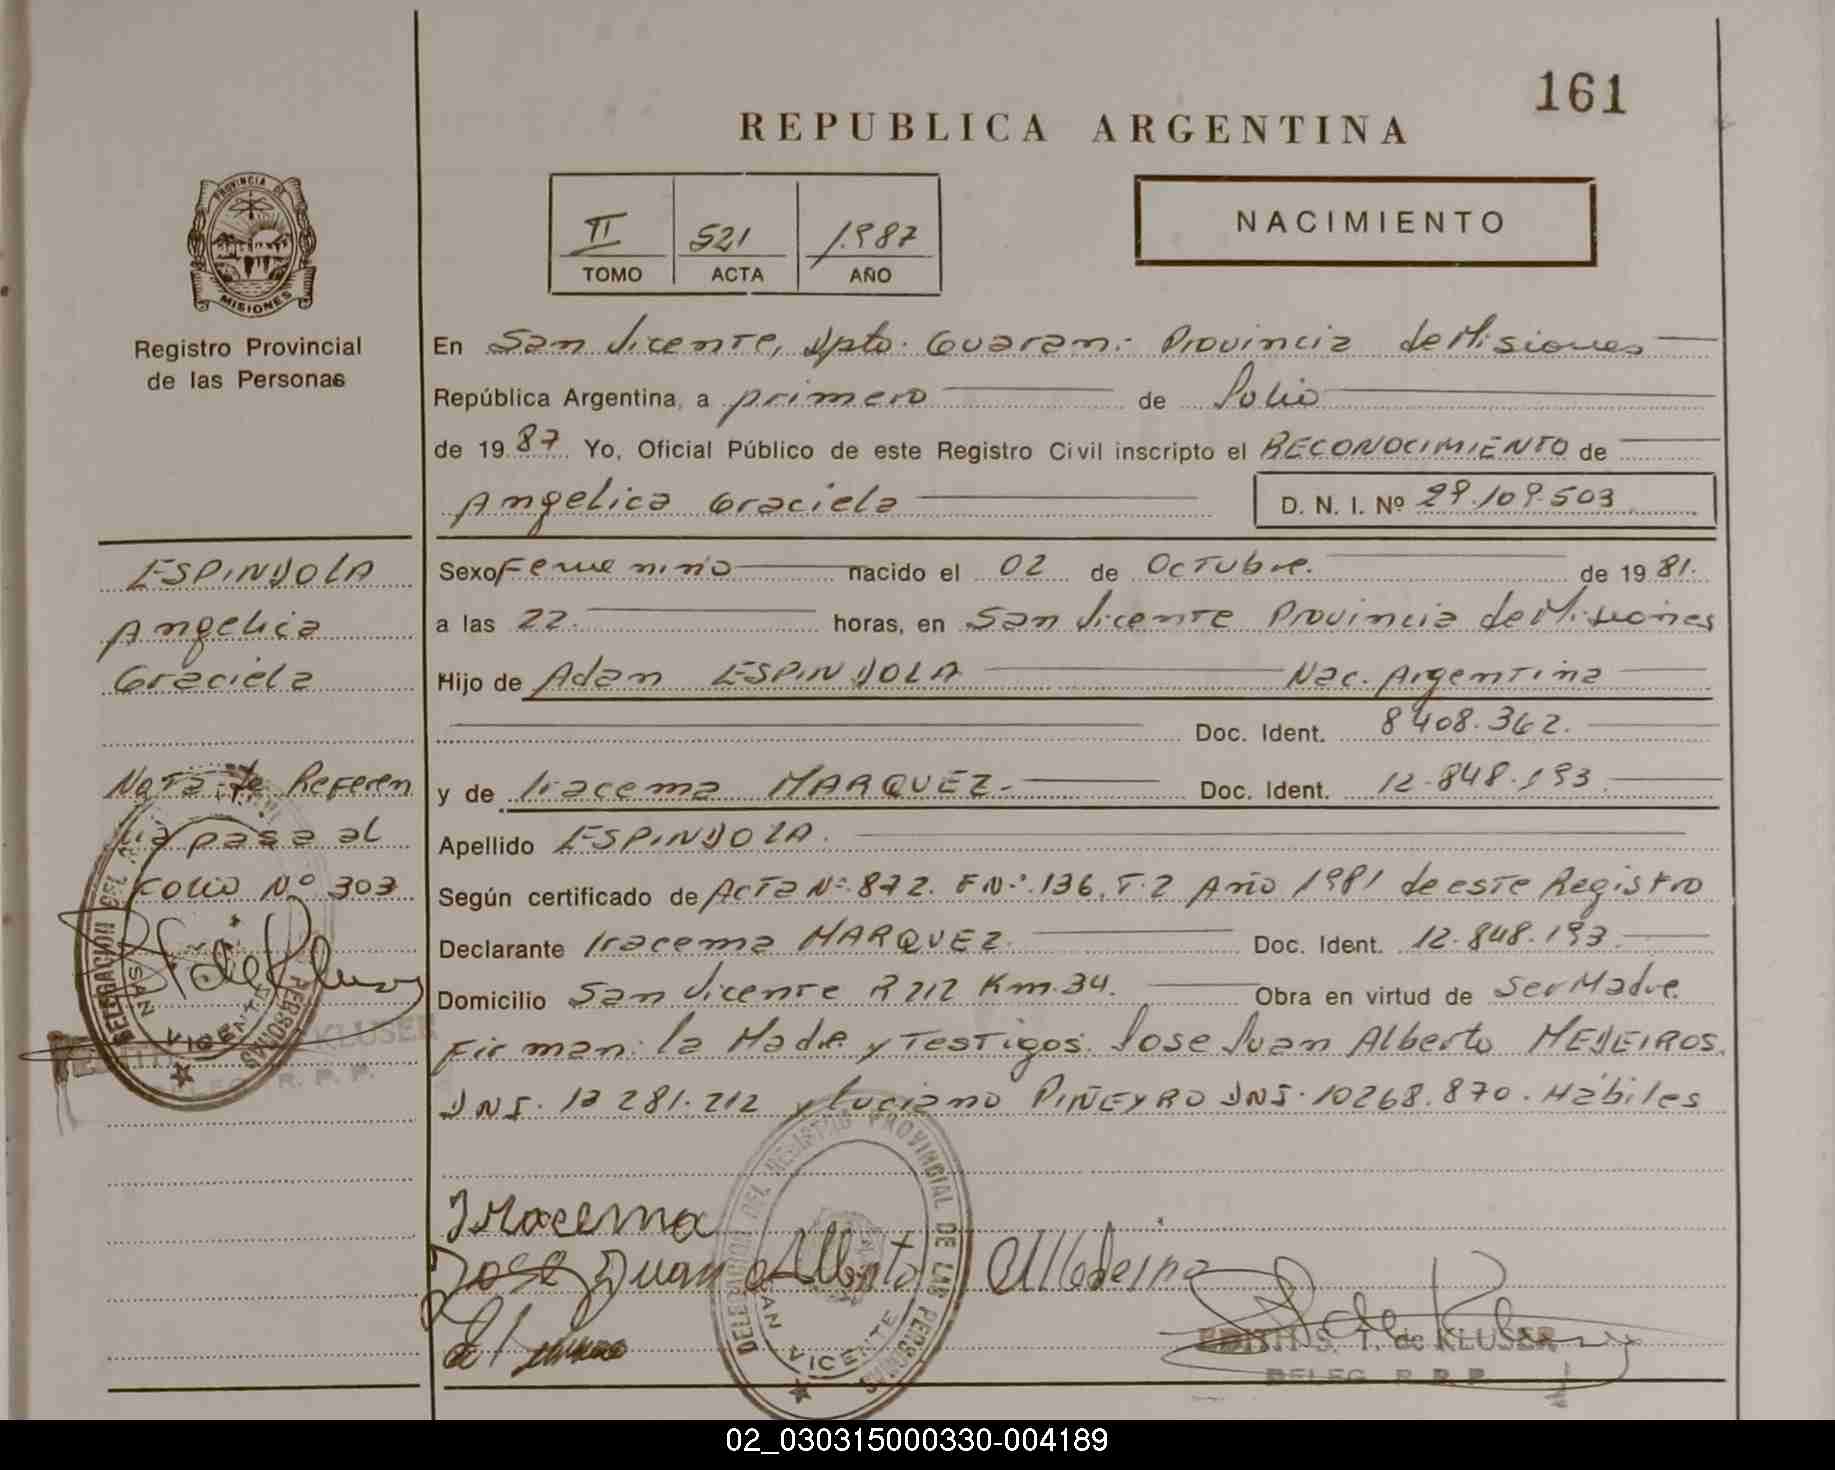 161
REPUBLICA ARGENTINA
PROVINCIA DE
MISIONES
Registro Provincial
de las Personas
II 521 1987
TOMO ACTA AÑO
NACIMIENTO
En San Vicente, Dpto. Guarani Provincia de Misiones
República Argentina, a primero de Julio
de 1987 Yo, Oficial Público de este Registro Civil inscripto el RECONOCIMIENTO de
Angelica Graciela D. N. I. Nº 29.109.503
ESPINDOLA
Angelica
Graciela
Sexo Femenino nacido el 02 de Octubre. de 1981.
a las 22. horas, en San Vicente Provincia de Misiones
Hijo de Adan ESPINDOLA Nac. Argentina
Doc. Ident. 8408.362.
Nota de Referen
cia pasa al
Folio Nº 303
y de Iracema MARQUEZ.- Doc. Ident. 12.848.193
Apellido ESPINDOLA.
Según certificado de Acta Nº 872. FNº 136, T.2 Año 1981 de este Registro
Declarante Iracema MARQUEZ. Doc. Ident. 12.848.193.
Domicilio San Vicente R 212 Km. 34. Obra en virtud de Ser Madre
Firman: la Madre y Testigos: Jose Juan Alberto MEDEIROS.
DNI. 281.212 y Luciano PIÑEYRO DNI. 10268.870. Hábiles
DELEGACION DEL
PERSONAS
SAN VICENTE
KLUSER
R. P. P.
Iracema
Jose Juan Alberto
DELEGACION DEL REGISTRO PROVINCIAL DE LAS PERSONAS
SAN VICENTE
EDITH S. T. de KLUSER
DELEG. R. P. P.
02_030315000330-004189